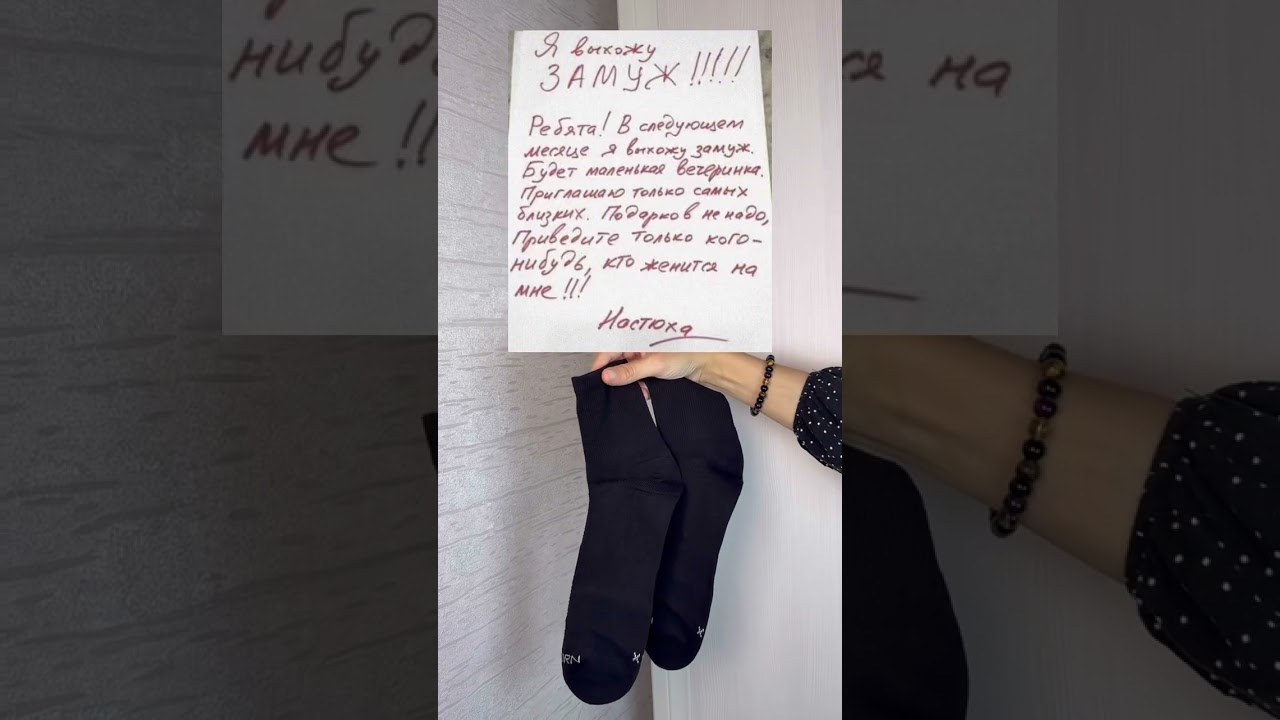 Я выхожу
ЗАМУЖ !!!!!
Ребята! В следующем
месяце я выхожу замуж.
Будет маленькая вечеринка.
Приглашаю только самых
близких. Подарков не надо,
Приведите только кого-
нибудь, кто женится на
мне!!!
Настюха